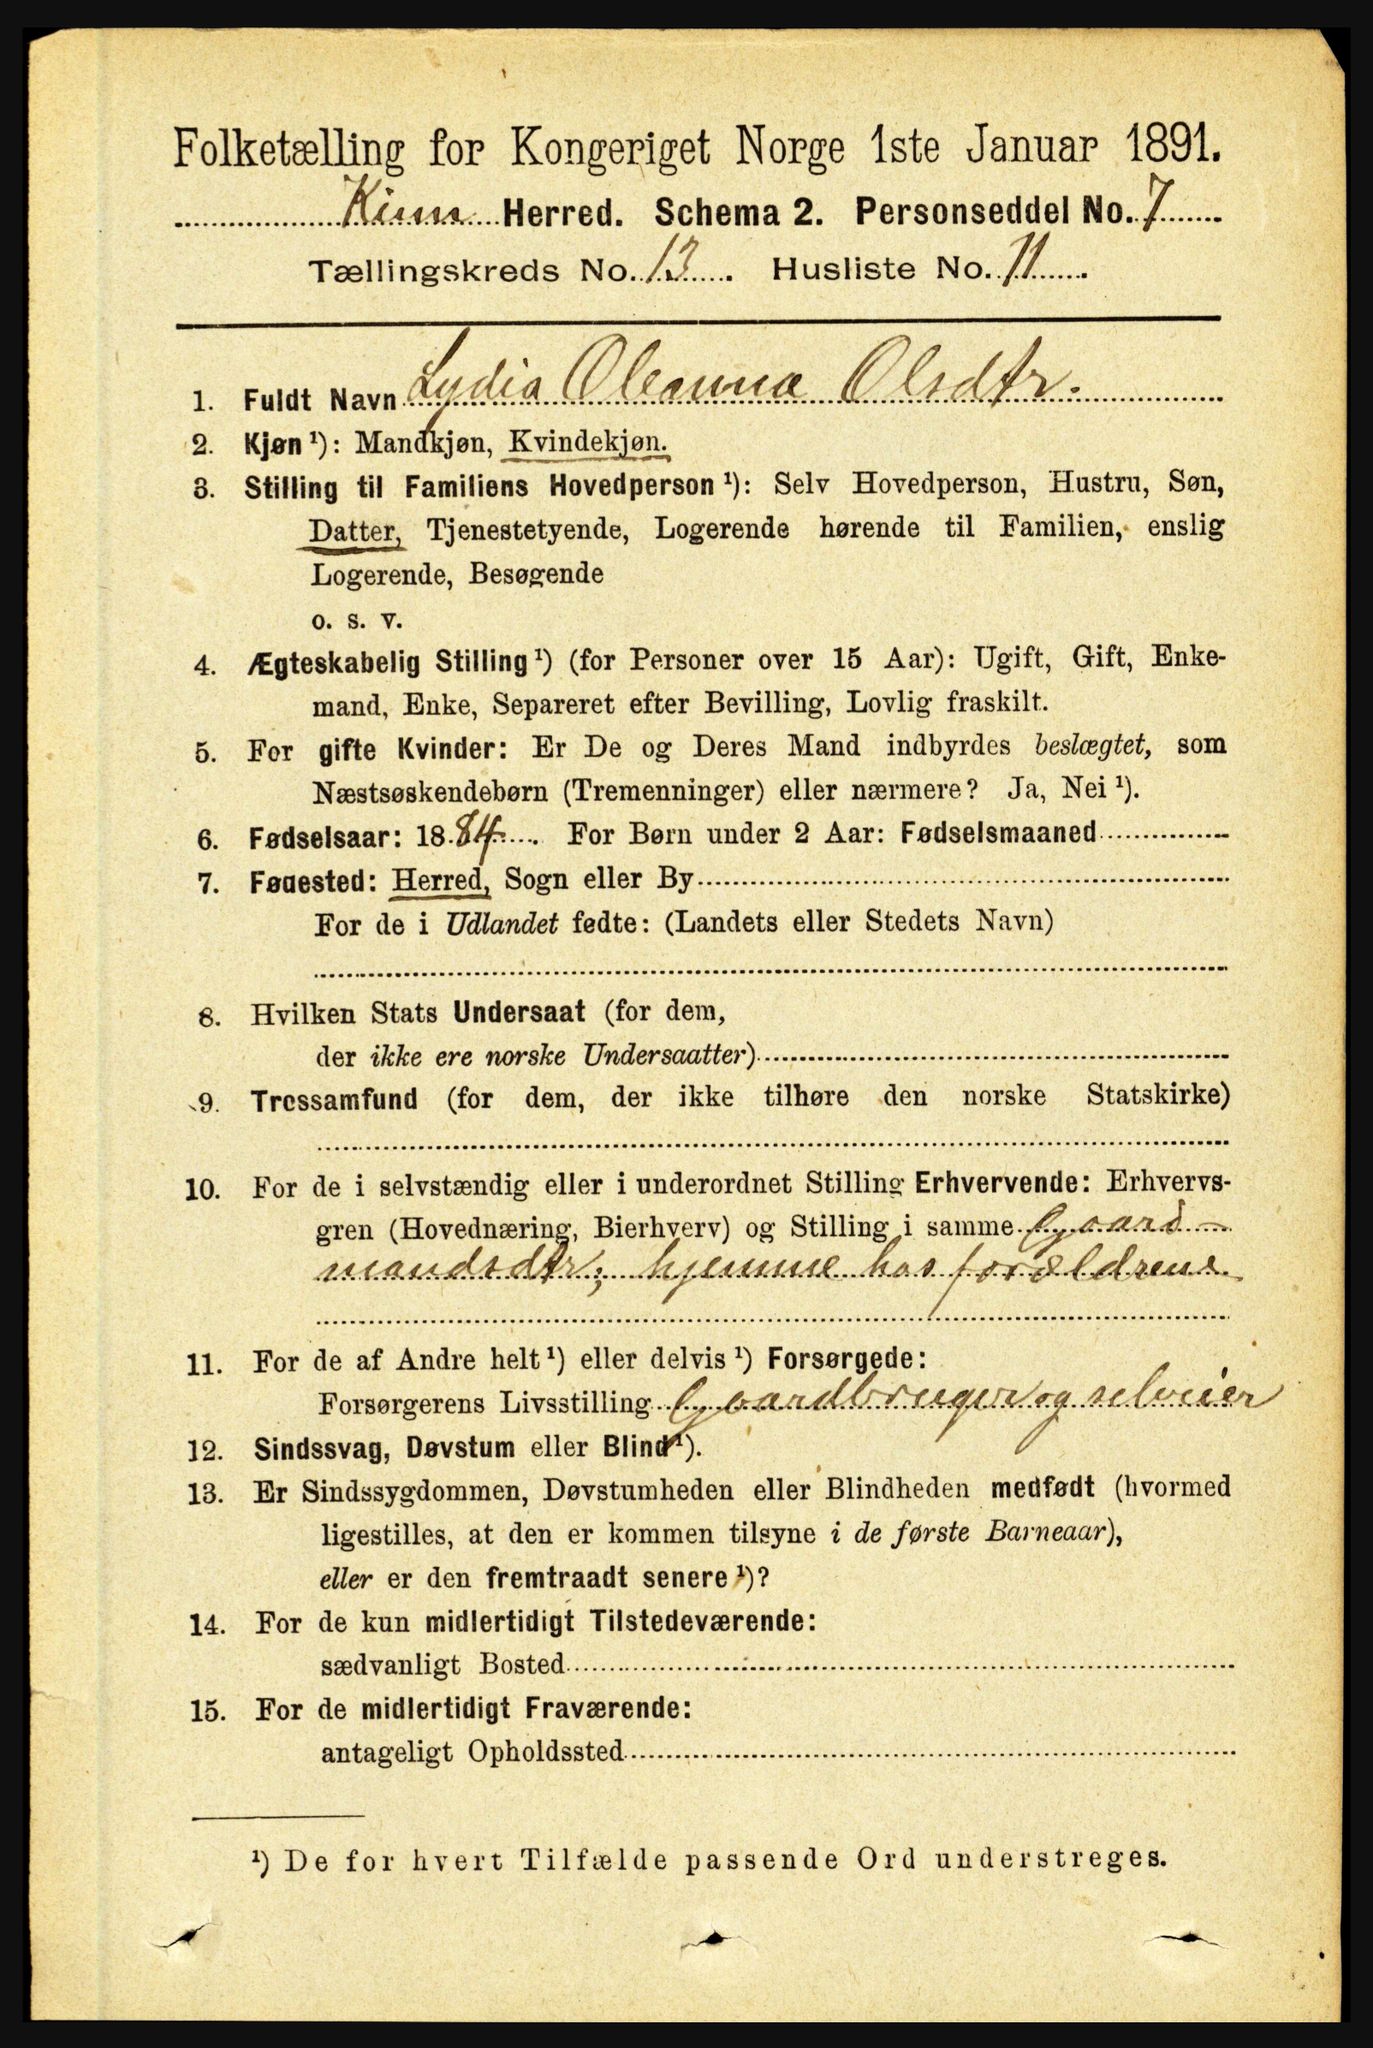 Folketælling for Kongeriget Norge 1ste Januar 1891.
Kinn Herred. Schema 2. Personseddel No. 7
Tællingskreds No. 13. Husliste No. 11
1. Fuldt Navn Lydia Oleanna Olsdtr.
2. Kjøn¹): Mandkjøn, Kvindekjøn.
3. Stilling til Familiens Hovedperson¹): Selv Hovedperson, Hustru, Søn,
Datter, Tjenestetyende, Logerende hørende til Familien, enslig
Logerende, Besøgende
o. s. v.
4. Ægteskabelig Stilling¹) (for Personer over 15 Aar): Ugift, Gift, Enke-
mand, Enke, Separeret efter Bevilling, Lovlig fraskilt.
5. For gifte Kvinder: Er De og Deres Mand indbyrdes beslægtet, som
Næstsøskendebørn (Tremenninger) eller nærmere? Ja, Nei¹).
6. Fødselsaar: 1884. For Børn under 2 Aar: Fødselsmaaned
7. Føuested: Herred, Sogn eller By
For de i Udlandet fødte: (Landets eller Stedets Navn)
8. Hvilken Stats Undersaat (for dem,
der ikke ere norske Undersaatter)
9. Trossamfund (for dem, der ikke tilhøre den norske Statskirke)
10. For de i selvstændig eller i underordnet Stilling Erhvervende: Erhvervs-
gren (Hovednæring, Bierhverv) og Stilling i samme Gaard-
mandsdtr; hjemme hos forældrene
11. For de af Andre helt¹) eller delvis¹) Forsørgede:
Forsørgerens Livsstilling Gaardbruger og selveier
12. Sindssvag, Døvstum eller Blind¹).
13. Er Sindssygdommen, Døvstumheden eller Blindheden medfødt (hvormed
ligestilles, at den er kommen tilsyne i de første Barneaar),
eller er den fremtraadt senere¹)?
14. For de kun midlertidigt Tilstedeværende:
sædvanligt Bosted
15. For de midlertidigt Fraværende:
antageligt Opholdssted
¹) De for hvert Tilfælde passende Ord understreges.